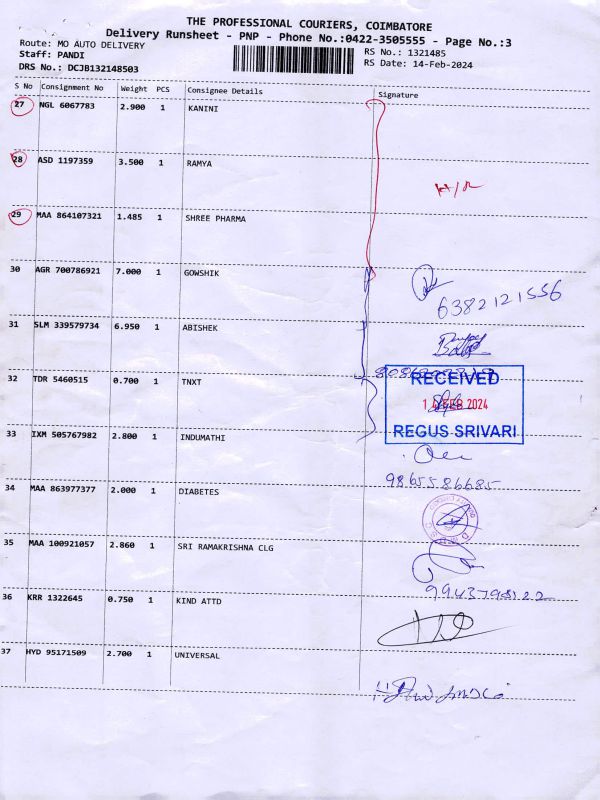 THE PROFESSIONAL COURIERS, COIMBATORE
Delivery Runsheet - PNP - Phone No.:0422-3505555 - Page No.:3
Route: MO AUTO DELIVERY
RS No.: 1321485
Staff: PANDI
RS Date: 14-Feb-2024
DRS No.: DCJB132148503
S No Consignment No Weight PCS Consignee Details Signature
27 NGL 6067783 2.900 1 KANINI
28 ASD 1197359 3.500 1 RAMYA
H/R
29 MAA 864107321 1.485 1 SHREE PHARMA
30 AGR 700786921 7.000 1 GOWSHIK
6382121556
31 SLM 339579734 6.950 1 ABISHEK
32 TDM 5460515 0.700 1 TNXT
RECEIVED
14 FEB 2024
REGUS SRIVARI
33 IXM 505767982 2.800 1 INDUMATHI
9865586685
34 MAA 863977377 2.000 1 DIABETES
35 MAA 100921057 2.860 1 SRI RAMAKRISHNA CLG
9943798122
36 KRR 1322645 0.750 1 KIND ATTD
37 HYD 95171509 2.700 1 UNIVERSAL